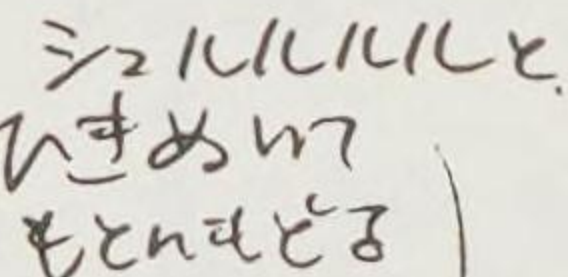 シュルルルルと、
ひきぬいて
もとにもどる